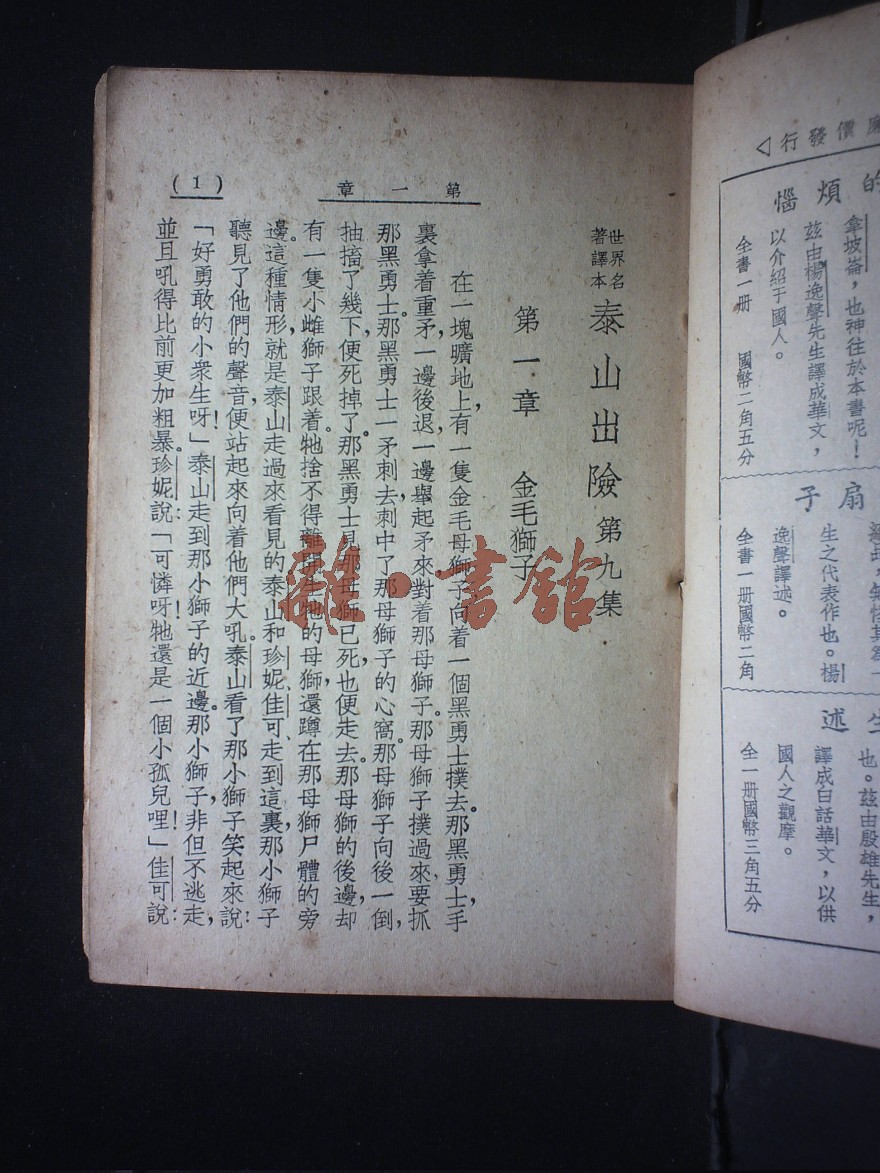 廉價發行◁
的煩惱
拿坡崙，也神往於本書呢！
茲由楊逸聲先生譯成華文，
以介紹于國人。
全書一册　國幣二角五分
扇子
生之代表作也。楊
逸聲譯述。
全書一册國幣二角
生述
也。茲由殷雄先生，
譯成白話華文，以供
國人之觀摩。
全一册國幣三角五分
第一章
(1)
世界名
著譯本
泰山出險　第九集
第一章　金毛獅子
在一塊曠地上，有一隻金毛母獅子，向着一個黑勇士撲去。那黑勇士手
裏拿着重矛，一邊後退，一邊舉起矛來，對着那母獅子。那母獅子撲過來，要抓
那黑勇士。那黑勇士一矛刺去，刺中了那母獅子的心窩。那母獅子向後一倒，
抽搐了幾下，便死掉了。那黑勇士見那母獅已死，也便走去。那母獅的後邊，却
有一隻小雌獅子跟着。牠捨不得離開生牠的母獅，還蹲在那母獅尸體的旁
邊。這種情形，就是泰山走過來看見的。泰山和珍妮、佳可、走到這裏，那小獅子
聽見了他們的聲音，便站起來，向着他們大吼。泰山看了那小獅子，笑起來說：
「好勇敢的小衆生呀！」泰山走到那小獅子的近邊。那小獅子，非但不逃走，
並且吼得比前更加粗暴。珍妮說：「可憐呀！牠還是一個小孤兒哩！」佳可說：
雜·書館